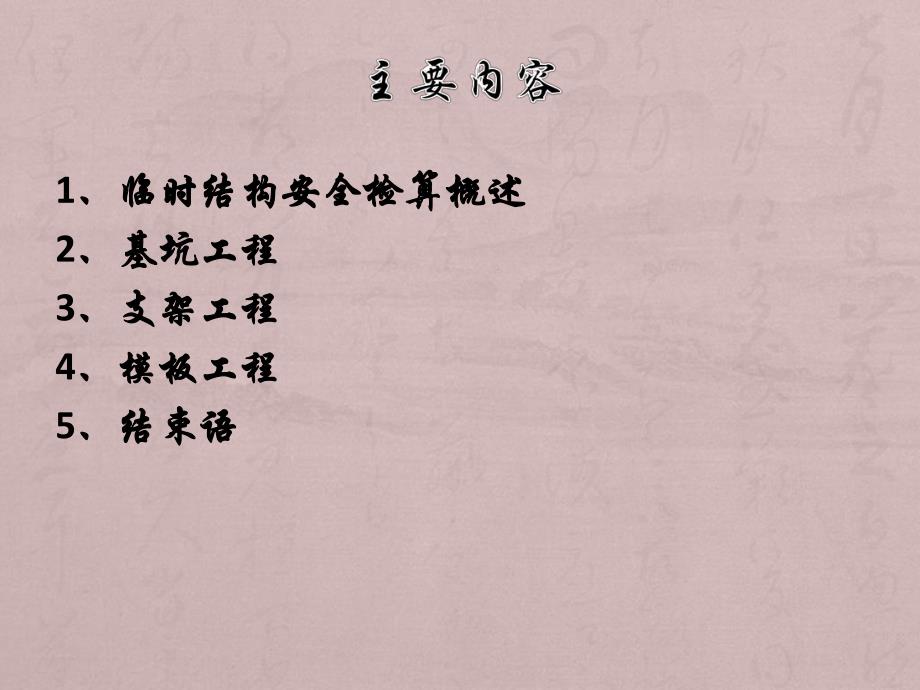 主要内容
1、临时结构安全检算概述
2、基坑工程
3、支架工程
4、模板工程
5、结束语